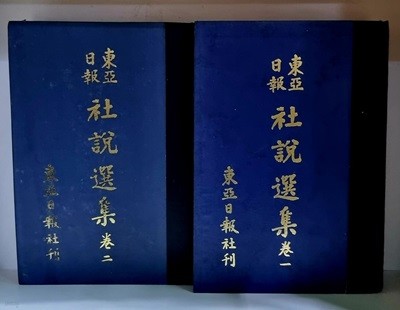 東亞
日報
社說選集 卷二
東亞日報社刊
東亞
日報
社說選集 卷一
東亞日報社刊